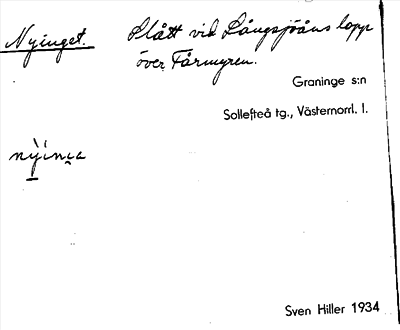 Nyinget. Slått vid Långsjöåns lopp
över Fårmyren.
Graninge s:n
Sollefteå tg., Västernorrl. l.
nyinça
Sven Hiller 1934